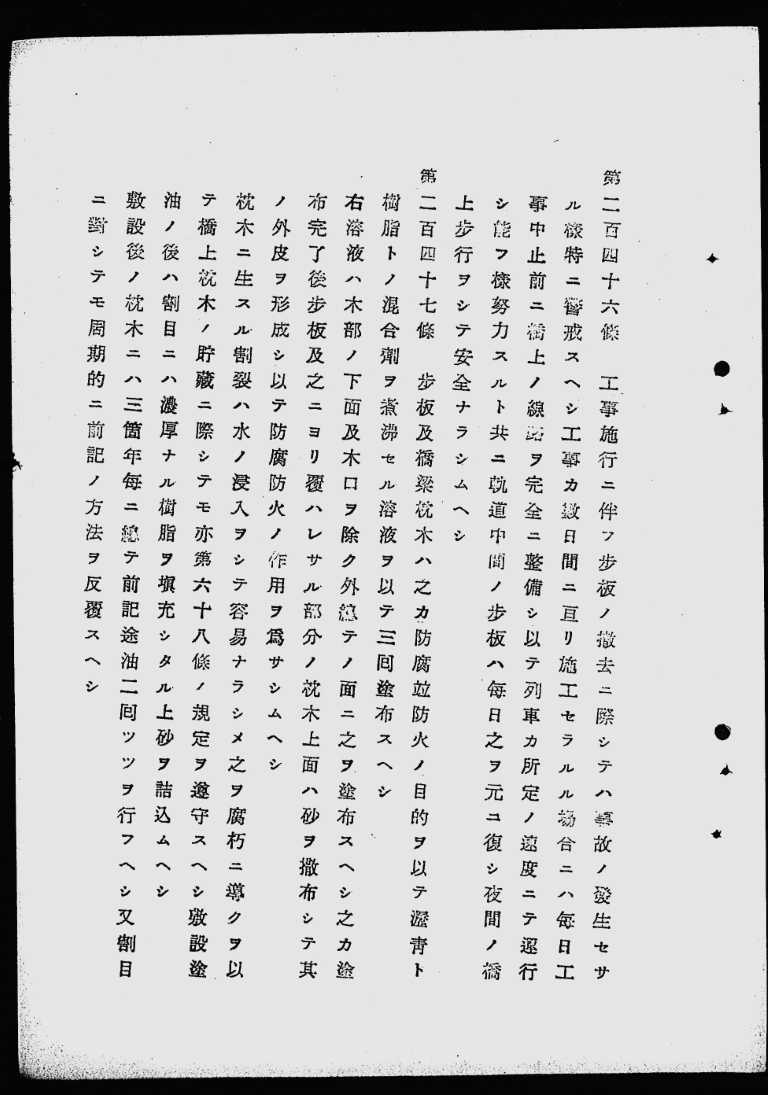 第二百四十六條　工事施行ニ伴フ步板ノ撤去ニ際シテハ事故ノ發生セサ
ル樣特ニ警戒スヘシ工事カ數日間ニ亘リ施工セラルル場合ニハ每日工
事中止前ニ橋上ノ線路ヲ完全ニ整備シ以テ列車カ所定ノ速度ニテ運行
シ能フ樣努力スルト共ニ軌道中間ノ步板ハ每日之ヲ元ニ復シ夜間ノ橋
上步行ヲシテ安全ナラシムヘシ
第二百四十七條　步板及橋梁枕木ハ之カ防腐竝防火ノ目的ヲ以テ瀝青ト
樹脂トノ混合劑ヲ煮沸セル溶液ヲ以テ三回塗布スヘシ
右溶液ハ木部ノ下面及木口ヲ除ク外總テノ面ニ之ヲ塗布スヘシ之カ塗
布完了後步板及之ニヨリ覆ハレサル部分ノ枕木上面ハ砂ヲ撒布シテ其
ノ外皮ヲ形成シ以テ防腐防火ノ作用ヲ爲サシムヘシ
枕木ニ生スル割裂ハ水ノ浸入ヲシテ容易ナラシメ之ヲ腐朽ニ導クヲ以
テ橋上枕木ノ貯藏ニ際シテモ亦第六十八條ノ規定ヲ遵守スヘシ敷設塗
油ノ後ハ割目ニハ濃厚ナル樹脂ヲ塡充シタル上砂ヲ詰込ムヘシ
敷設後ノ枕木ニハ三箇年每ニ總テ前記途油二回ツツヲ行フヘシ又割目
ニ對シテモ周期的ニ前記ノ方法ヲ反覆スヘシ